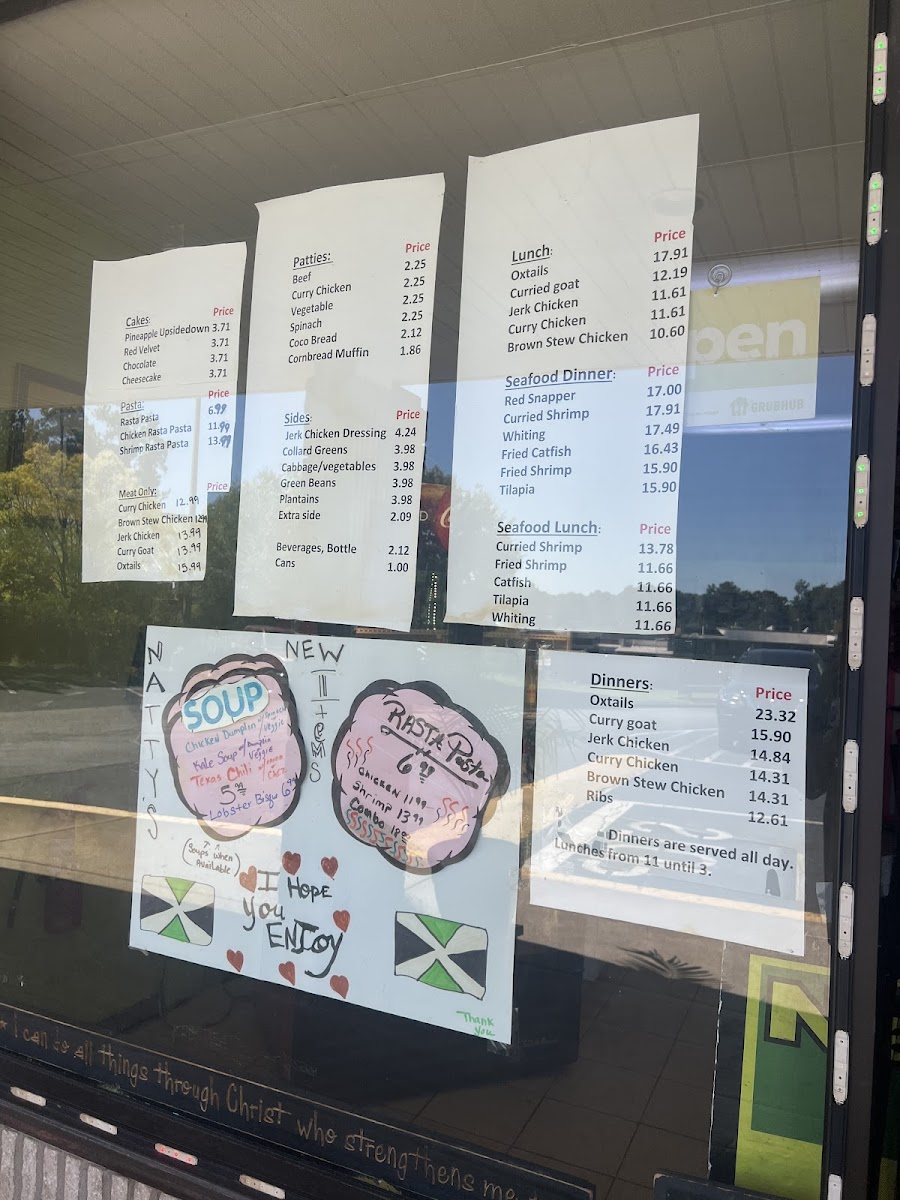 Cakes: Price
Pineapple Upsidedown 3.71
Red Velvet 3.71
Chocolate 3.71
Cheesecake 3.71
Pasta: Price
Rasta Pasta 6.99
Chicken Rasta Pasta 11.99
Shrimp Rasta Pasta 13.99
Meat Only: Price
Curry Chicken 12.99
Brown Stew Chicken 12.99
Jerk Chicken 13.99
Curry Goat 13.99
Oxtails 15.99
Patties: Price
Beef 2.25
Curry Chicken 2.25
Vegetable 2.25
Spinach 2.25
Coco Bread 2.12
Cornbread Muffin 1.86
Sides: Price
Jerk Chicken Dressing 4.24
Collard Greens 3.98
Cabbage/vegetables 3.98
Green Beans 3.98
Plantains 3.98
Extra side 2.09
Beverages, Bottle 2.12
Cans 1.00
Lunch: Price
Oxtails 17.91
Curried goat 12.19
Jerk Chicken 11.61
Curry Chicken 11.61
Brown Stew Chicken 10.60
Seafood Dinner: Price
Red Snapper 17.00
Curried Shrimp 17.91
Whiting 17.49
Fried Catfish 16.43
Fried Shrimp 15.90
Tilapia 15.90
Seafood Lunch: Price
Curried Shrimp 13.78
Fried Shrimp 11.66
Catfish 11.66
Tilapia 11.66
Whiting 11.66
pen
GRUBHUB
NATTY'S
NEW ITEMS
SOUP
Chicken Dumplin
Veggie
Kale Soup w/ Dumplin
Veggie
Texas Chili
5
Lobster Bisqu 6.99
(Soups when
Available)
RASTA Pasta
6.99
Chicken 11.99
Shrimp 13.99
Combo
I HOPE
You
ENJOY
Thank
you
Dinners: Price
Oxtails 23.32
Curry goat 15.90
Jerk Chicken 14.84
Curry Chicken 14.31
Brown Stew Chicken 14.31
Ribs 12.61
Dinners are served all day.
Lunches from 11 until 3.
N
* I can do all things through Christ who strengthens me